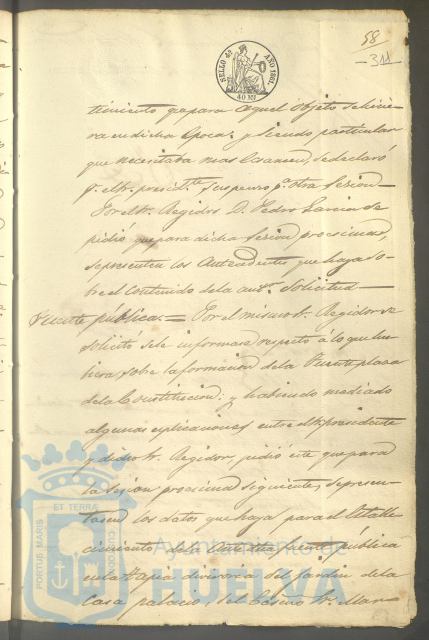 58
311
SELLO 4º AÑO 1861
40 Mº
timiento que para aquel objeto se hicie-
ra en dicha época; y siendo particular
que necesitaba mas examen, se declaró
p.r el Sr. presid.te suspenso p.a otra sesion =
Por el Sr. Regidor D. Pedro Garcia se
pidió que para dicha sesion procsima,
se presenten los antecedentes que haya so-
bre el contenido de la solicitud =
Fuente pública = Por el mismo Sr. Regidor se
solicitó se le informara respeto á lo que hu-
biera sobre la formacion de la Fuente plaza
de la Constitucion; y habiendo mediado
algunas esplicaciones entre el Sr. presidente
y dicho Sr. Regidor, pidió éste que para
la sesion procsima siguiente, se presen-
tasen los datos que haya para el estable-
cimiento de la fuente pública
en la tapia divisoria del jardin de la
Casa palacio, del Sr.
PORTUS MARIS ET TERRAE CUSTODIA
Ayuntamiento de
HUELVA